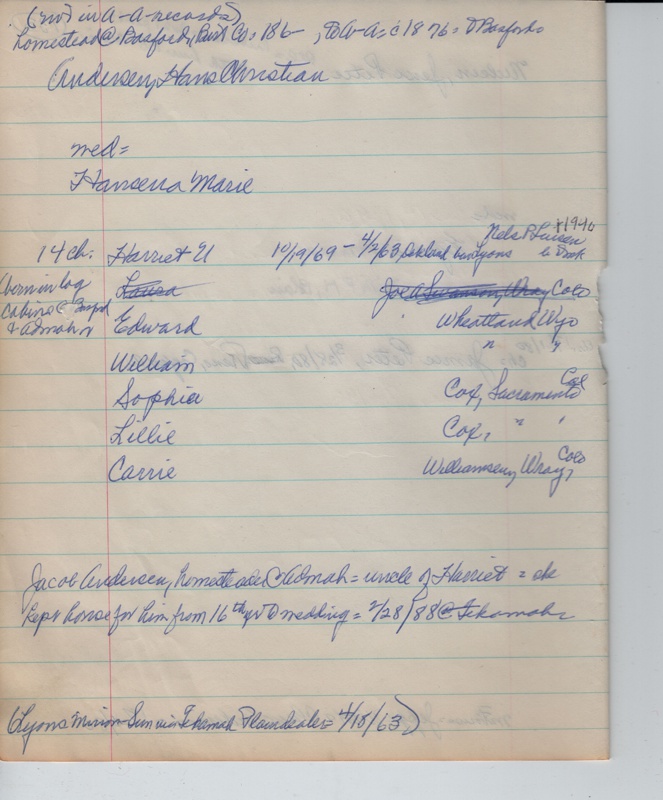 (not in A-A-records)
homestead @ Basford, Burt Co = 186- , to A-A = c 1876 = Basford
Andersen, Hans Christian
med =
Hansena Marie
+1940
Nels P. Larsen
14 ch: Harriet U 10/19/69 - 4/2/63 Oakland Lyons
born in log Louisa Joe A Swanson, Wray Colo
cabin @
& Admah Edward Wheatland Wyo
William " "
Sophia Cox, Sacramento Cal
Lillie Cox, " "
Carrie Williamsen, Wray, Colo
Jacob Andersen, homesteader @ Admah = uncle of Harriet = she
kept house for him from 16th yr to wedding = 2/28/88 @ Tekamah
(Lyons Mirror-Sun via Tekamah Plaindealer = 4/18/63)